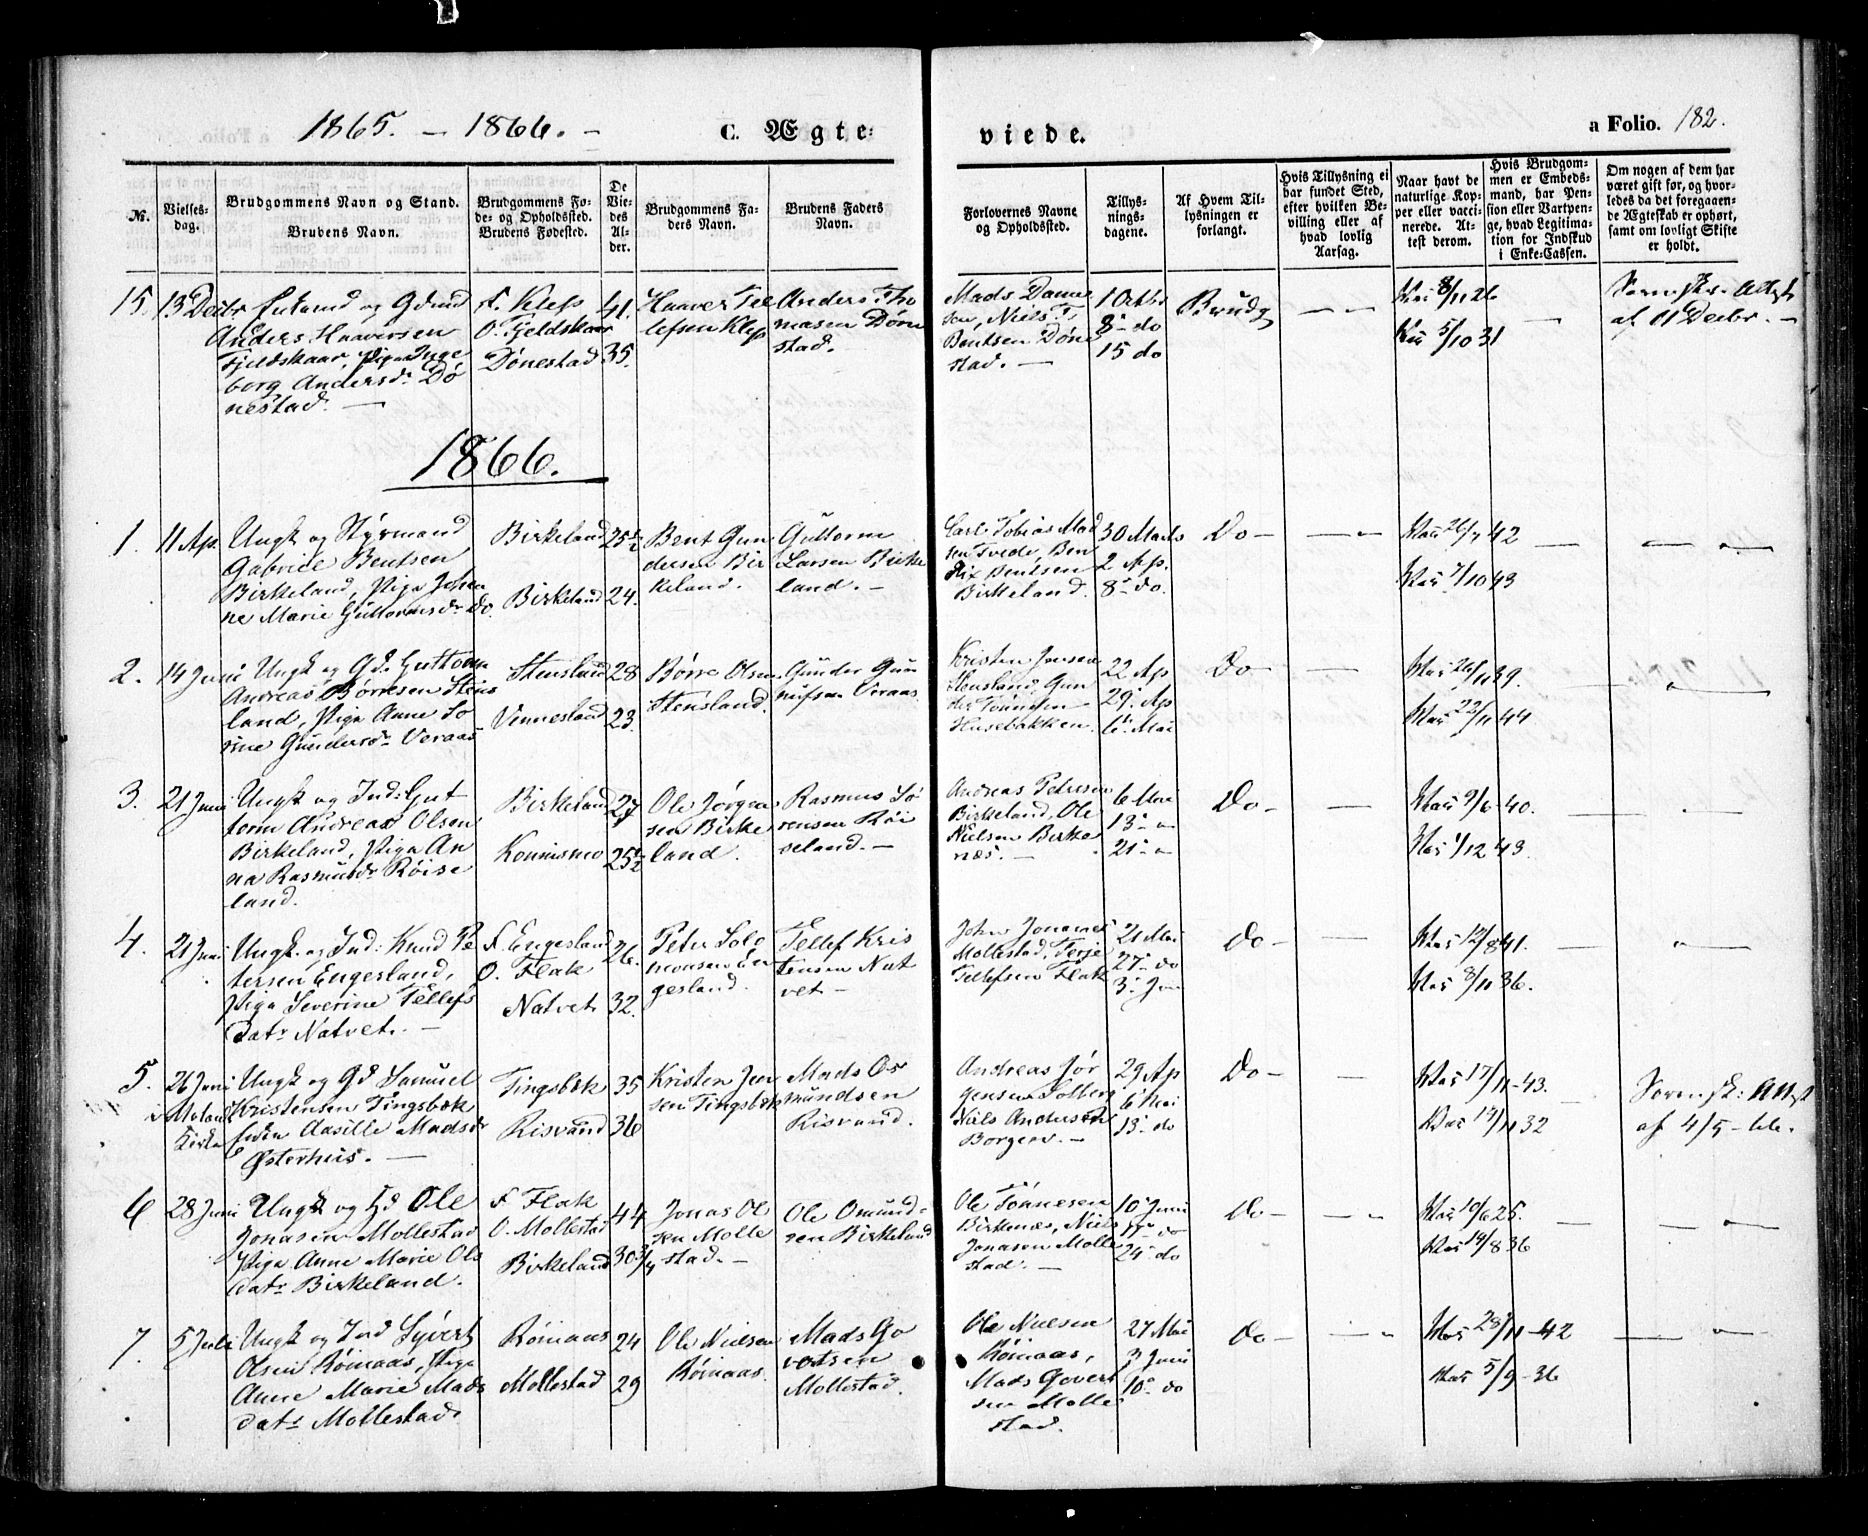 1865. – 1866. –
C. Ægte=
viede.
a Folio. 182.
№.
Vielses-
dag.
Brudgommens Navn og Stand.
Brudens Navn.
Brudgommens Fø-
de- og Opholdssted.
Brudens Fødested.
De
Vie-
des
Al-
der.
Brudgommens Fa-
ders Navn.
Brudens Faders
Navn.
Forlovernes Navne
og Opholdssted.
Tillys-
nings-
dagene.
Af Hvem Til-
lysningen er
forlangt.
Hvis Tillysning ei
har fundet Sted,
efter hvilken Be-
villing eller af
hvad lovlig
Aarsag.
Naar havt de
naturlige Kop-
per eller vacci-
nerede. At-
test derom.
Hvis Brudgom-
men er Embeds-
mand, har Pen-
sion eller Vartpen-
ge, hvad Legitima-
tion for Indskud
i Enke-Cassen.
Om nogen af dem har
været gift før, og hvor-
ledes da det foregaaen-
de Ægteskab er ophørt,
samt om lovligt Skifte
er holdt.
15. 13 Decbr Enkemd og Gdmd
Anders Haaversen
Fjeldskaar, Piga Inge
borg Andersdr Dø
nestad. —
F. Klep
O. Fjeldskaar
Dønestad
41.
35.
Haaver Tel
lefsen Klep
Anders Tho
masen Døne
stad.
Mads Danie
sen, Niels T.
Bentsen Døne
stad. —
1 Octbr
8 – do
15 do
Brudg
— —
Vac 8/11 26
Vac 5/10 31
—
af 11 Decbr. –
1866.
1. 11 Ap. Ungk og Styrmand
Gabriel Bentsen
Birkeland, Piga Joha
ne Marie Guttormsdr do.
Birkeland
Birkeland
25½
24.
Bent Gun
dersen Bir
keland.
Guttorm
Larsen Birke
land. –
Carl Tobias Mad
sen Tvede, Ben
dix Bentsen
Birkeland.
30 Marts
2 Ap.
8 – do.
Do –
— –
Vac 26/7 42
Vac 7/10 43
—
— „ —
2. 14 Juni Ungk og Gd. Guttorm
Andreas Børresen Stens
land, Piga Anne So
rine Gundersdr Veraas
Stensland
Vennesland
28
23.
Børre Olsen
Stensland.
Gunder Gun
nufsen Veraas
Kristen Jensen
Stensland, Gun
der Tønnesen
Husebakken.
22 Ap
29 – Ap
6 – Mai
Do
—
Vac 26/11 39.
Vac 22/11 44
—
„ —
3. 21 Juni Ungk og Ind: Gut
torm Andreas Olsen
Birkeland, Piga An
na Rasmusdr Røise
land.
Birkeland
Konnismo
27
25½
Ole Jørgen
sen Birke
land.
Rasmus Sø
rensen Røi
seland. –
Andreas Petersen
Birkeland, Ole
Nielsen Birke
næs. –
6 Mai
13 – „
21 – „
Do –
—
Vac 9/6 – 40.
Vac 1/12 43.
—
„
4. 21 Juni Ungk. og Ind: Knud Pe
tersen Engesland,
Piga Severine Tellefs
datr Natvet. –
F. Engesland
O. Flak
Natvet
26.
32.
Peter Salo
monsen En
gesland.
Tellef Kris
tensen Nat
vet –
John Jonasen
Mollestad, Terje
Tellefsen Flak
21 Mai
27 – do
3 – Jun
Do –
—
Vac 12/8 41.
Vac 8/11 36.
—
„ —
5. 26 Juni
i Moland
Kirke
Ungk og Gd Samuel
Kristensen Tingsbæk
Enken Aasille Madsdr
Østerhus. —
Tingsbæk
Risvand
35
36
Kristen Jen
sen Tingsbæk
Mads Os
mundsen
Risvand.
Andreas Jør
gensen Solberg
Niels Andersen
Borgen. –
29 Ap
6 Mai
13 – do
Do –
—
Vac 17/11 – 43.
Vac 19/11 32
—
af 4/5 –
6 28 Juni Ungk og Gd Ole
Jonasen Mollestad
Piga Anne Marie Ols
datr Birkeland.
F. Flak
O. Mollestad
Birkeland
44
30 3/4
Jonas Ol
sen Molle
stad. –
Ole Omund-
sen Birkeland
Ole Tønnesen
Birkenæs, Niels
Jonasen Molle
stad. —
10 Juni
17 – do
24 – do
Do –
— „
Vac 10/6 25.
Vac 19/8 36
—
„ —
7. 5 Juli Ungk og Ind Syvert
Olsen Rømaas, Piga
Anne Marie Mads
datr Mollestad.
Rømaas
Mollestad
24
29
Ole Nielsen
Rømaas.
Mads Go
vertsen
Mollestad.
Ole Nielsen
Rømaas,
Mads Govert
sen Molle
stad.
27 Mai
3 Juni
10 – do
Do –
— „
Vac 28/11 – 42
Vac 5/9 – 36
—
„ —